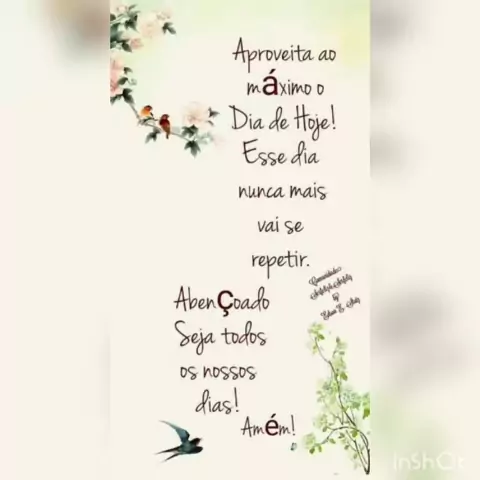 Aproveita ao
máximo o
Dia de Hoje!
Esse dia
nunca mais
vai se
repetir.
Abençoado
Seja todos
os nossos
dias!
Amém!
InShOt